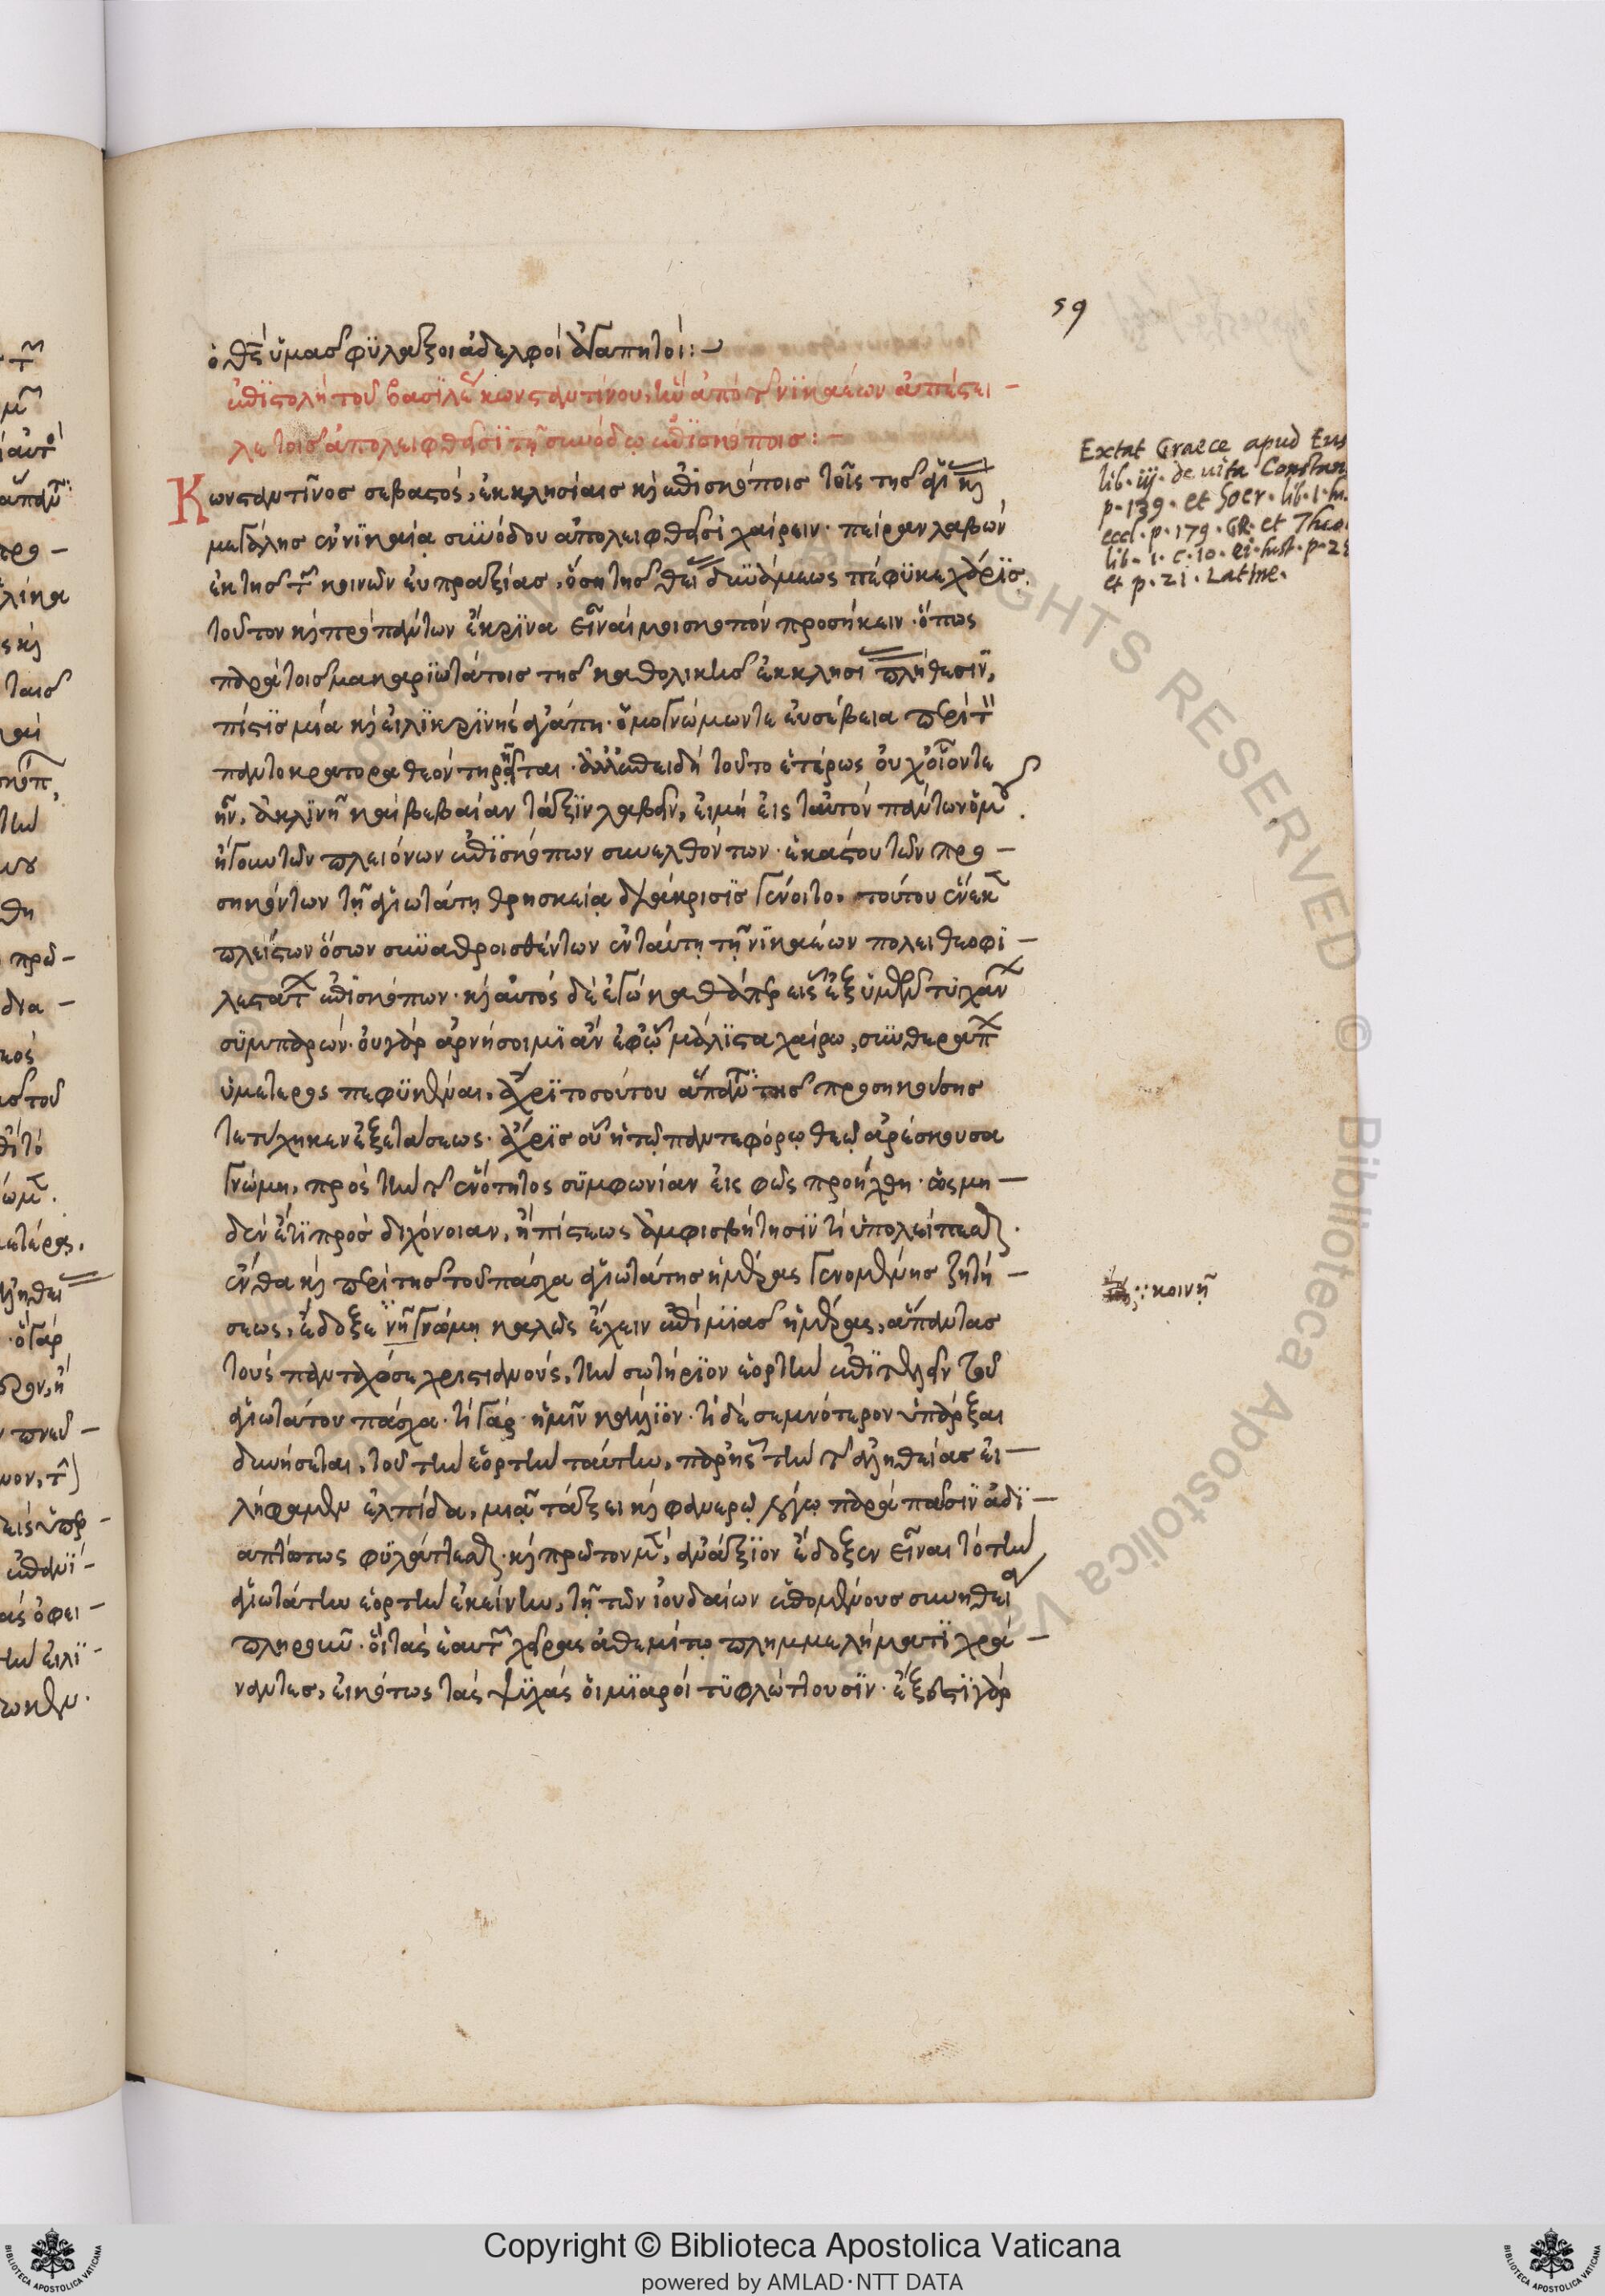 59
ὁ θεὸς ὑμᾶς φυλάξοι ἀδελφοὶ ἀγαπητοί :-
ἐπιστολὴ τοῦ βασιλέως κωνσταντίνου, ἣν ἀπὸ τῆς νικαέων ἀπέστει-
λε τοῖς ἀπολειφθεῖσι τῇ συνόδῳ ἐπισκόποις :-
Κωνσταντῖνος σεβαστός, ἐκκλησίαις καὶ ἐπισκόποις τοῖς τῆς ἁγίας καὶ
μεγάλης ἐν νικαίᾳ συνόδου ἀπολειφθεῖσι χαίρειν· πεῖραν λαβὼν
ἐκ τῆς τῶν κοινῶν εὐπραξίας, ὅση τῆς θείας δυνάμεως πέφυκε χάρις.
τοῦτον καὶ πρὸ πάντων ἔκρινα εἶναί μοι σκοπὸν προσήκειν· ὅπως
παρὰ τοῖς μακαριωτάτοις τῆς καθολικῆς ἐκκλησίας πλήθεσιν,
πίστις μία καὶ εἰλικρινὴς ἀγάπη· ὁμογνώμων τε εὐσέβεια περὶ τὸν
παντοκράτορα θεὸν τηρῆται· ἀλλ' ἐπειδὴ τοῦτο ἑτέρως οὐχ οἷόν τε
ἦν, ἀκλινῆ καὶ βεβαίαν τάξιν λαβεῖν, εἰ μὴ εἰς ταὐτὸν πάντων ὁμοῦ.
ἢ γοῦν τῶν πλειόνων ἐπισκόπων συνελθόντων· ἑκάστου τῶν προ-
σηκόντων τῇ ἁγιωτάτῃ θρησκείᾳ διάκρισις γένοιτο. τούτου ἕνεκεν
πλείστων ὅσων συναθροισθέντων ἐν ταύτῃ τῇ νικαέων πόλει θεοφι-
λεστάτων ἐπισκόπων· καὶ αὐτὸς δὲ ἐγὼ καθάπερ εἷς ἐξ ὑμῶν ἐτύγχανον
συμπαρών· οὐ γὰρ ἀρνησοίμην ἂν ἐφ' ᾧ μάλιστα χαίρω, συνθεράπων
ὑμέτερος πεφυκέναι. ἄχρι τοσούτου ἅπαντα τῆς προσηκούσης
τετύχηκεν ἐξετάσεως· ἄχρις οὗ ἡ τῷ παντεφόρῳ θεῷ ἀρέσκουσα
γνώμη, πρὸς τὴν τῆς ἑνότητος συμφωνίαν εἰς φῶς προήχθη· ὡς μη-
δὲν ἔτι πρὸς διχόνοιαν, ἢ πίστεως ἀμφισβήτησίν τι ὑπολείπεσθαι.
ἔνθα καὶ περὶ τῆς τοῦ πάσχα ἁγιωτάτης ἡμέρας γενομένης ζητή-
σεως, ἔδοξε νῇ γνώμῃ καλῶς ἔχειν ἐπὶ μιᾶς ἡμέρας, ἅπαντας
τοὺς πανταχόσε χριστιανούς, τὴν σωτήριον ἑορτὴν ἐπιτελεῖν τοῦ
ἁγιωτάτου πάσχα· τί γὰρ ἡμῖν κάλλιον· τί δὲ σεμνότερον ὑπάρξαι
δυνήσεται, τοῦ τὴν ἑορτὴν ταύτην, παρ' ἧς τὴν τῆς ἀληθείας εἰ-
λήφαμεν ἐλπίδα, μιᾷ τάξει καὶ φανερῷ λόγῳ παρὰ πᾶσιν ἀδι-
απτώτως φυλάττεσθαι· καὶ πρῶτον μὲν, ἀνάξιον ἔδοξεν εἶναι τὸ τὴν
ἁγιωτάτην ἑορτὴν ἐκείνην, τῇ τῶν ἰουδαίων ἑπομένους συνηθείᾳ
πληροῦν· οἳ τὰς ἑαυτῶν χεῖρας ἀθεμίτῳ πλημμελήματι χρά-
ναντες, εἰκότως τὰς ψυχὰς οἱ μιαροὶ τυφλώττουσιν· ἔξεστι γὰρ
Extat Graece apud Eus
lib. iij. de uita Constan
p. 139. et Socr. lib. 1. hi.
eccl. p. 179. GR. et Theo
lib. 1. c. 10. p. 2
et p. 21. Latine.
κοινῇ
Copyright © Biblioteca Apostolica Vaticana
powered by AMLAD·NTT DATA